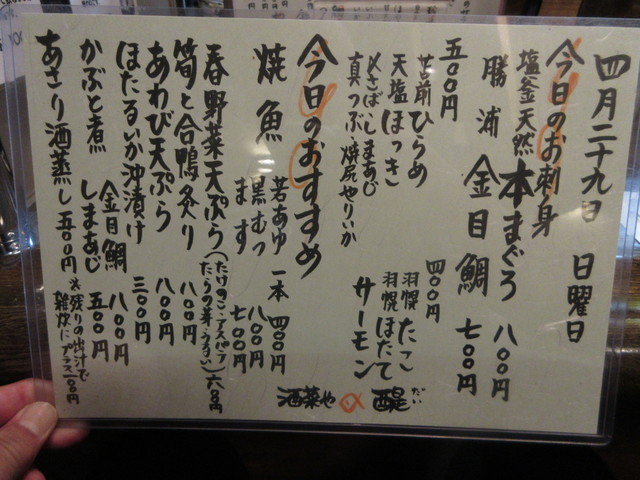 四月二十九日 日曜日
今日のお刺身
塩釜天然本まぐろ 八〇〇円
勝浦 金目鯛 七〇〇円
五〇〇円
昔前ひらめ
天塩ほっき
〆さば しまあじ
真つぶ 焼尻やりいか
四〇〇円
羽幌たこ
羽幌ほたて
サーモン
今日のおすすめ
焼魚 若あゆ 一本 四〇〇円
黒むつ 八〇〇円
ます 七〇〇円
春野菜天ぷら(たけのこ・アスパラ
たらの芽・うるい) 六〇〇円
筍と合鴨炙り 八〇〇円
あわび天ぷら 八〇〇円
ほたるいか沖漬け 三〇〇円
かぶと煮 金目鯛 八〇〇円
しまあじ 五〇〇円
※残りの出汁で
雑炊に プラス一〇〇円
あさり酒蒸し 五〇〇円
酒菜や 醍 だい